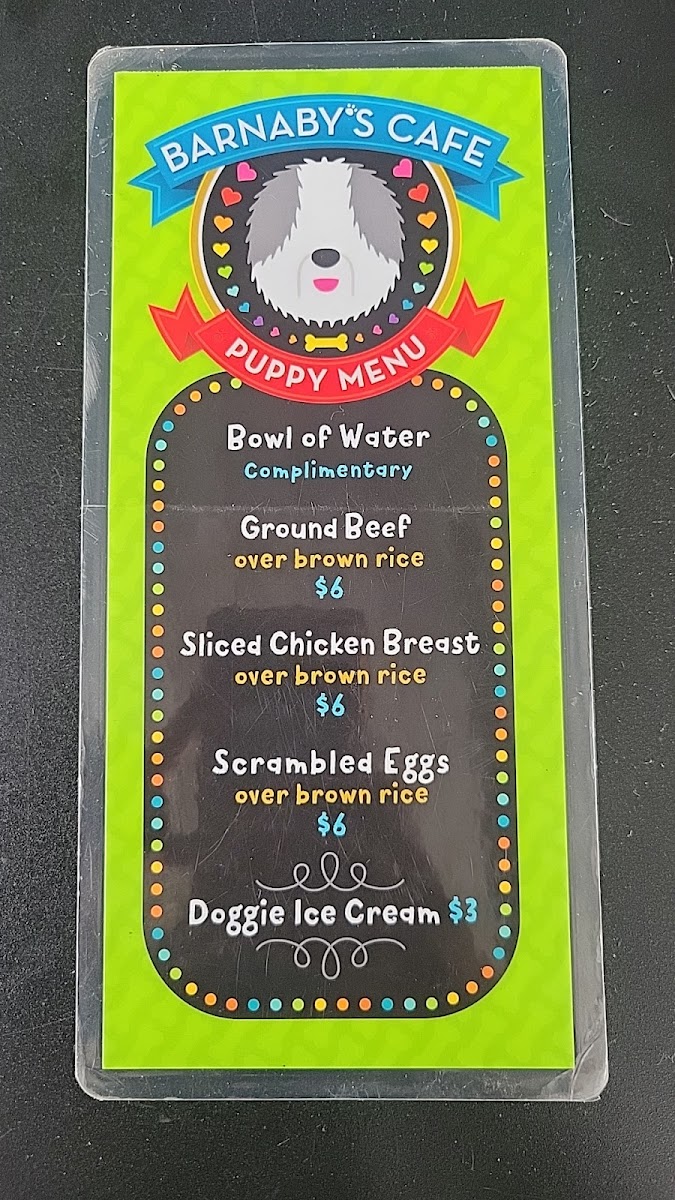 BARNABY'S CAFE
PUPPY MENU
Bowl of Water
Complimentary
Ground Beef
over brown rice
$6
Sliced Chicken Breast
over brown rice
$6
Scrambled Eggs
over brown rice
$6
Doggie Ice Cream $3